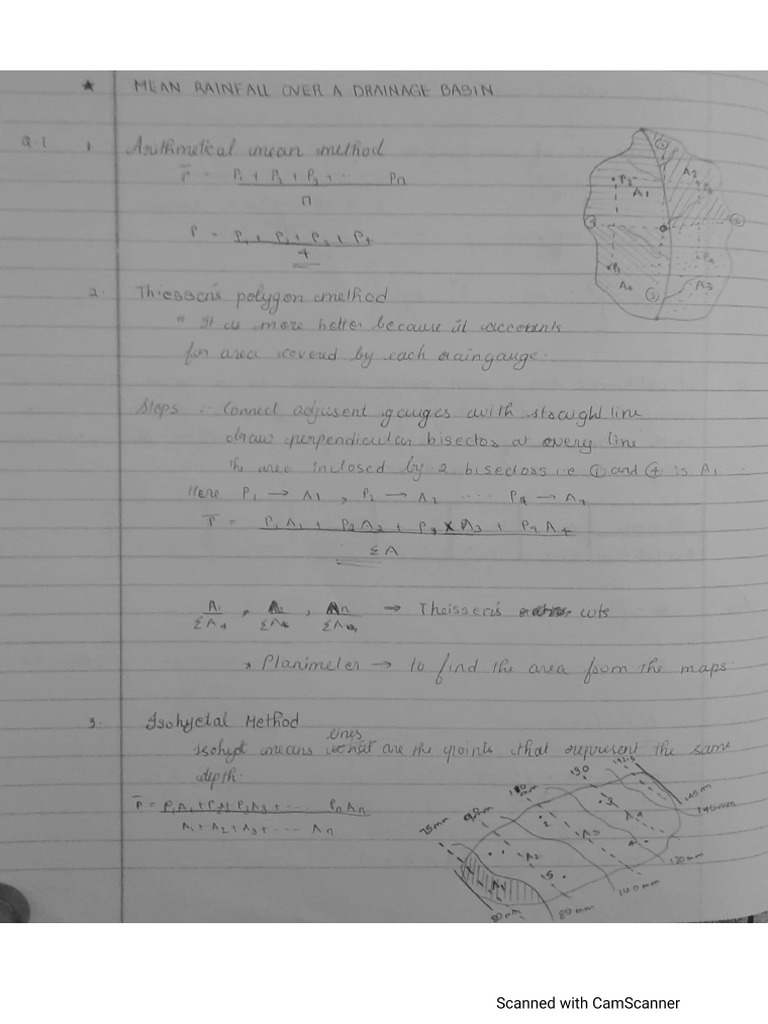 ★ MEAN RAINFALL OVER A DRAINAGE BASIN
Q.1 1 Arithmetical mean method
P̅ = P₁ + P₂ + P₃ + ... Pn
n
P = P₁ + P₂ + P₃ + P₄
4
P₂
A₁
A₂
P₁
A₄
A₃
2. Thiessen's polygon method
It is more better because it accounts
for area covered by each raingauge.
Steps :- Connect adjusent gauges with straight line
draw perpendicular bisector at every line
The area inclosed by 2 bisectors i.e ① and ④ is A₁
Here P₁ → A₁ , P₂ → A₂ .... P₄ → A₄
P̅ = P₁A₁ + P₂A₂ + P₃ x A₃ + P₄A₄
ΣA
→ Theissen's wts
* Planimeter → to find the area from the maps
3. Isohyetal Method
lines
Isohyt means are the points that represent the same
depth.
P̅ = P₁A₁ + P₂ P₃A₃ + ... PnAn
A₁ + A₂ + A₃ + ... An
75mm
130
142.5
145m
140mm
120mm
100mm
80mm
A₁
A₂
A₃
A₄
2
3
5
4